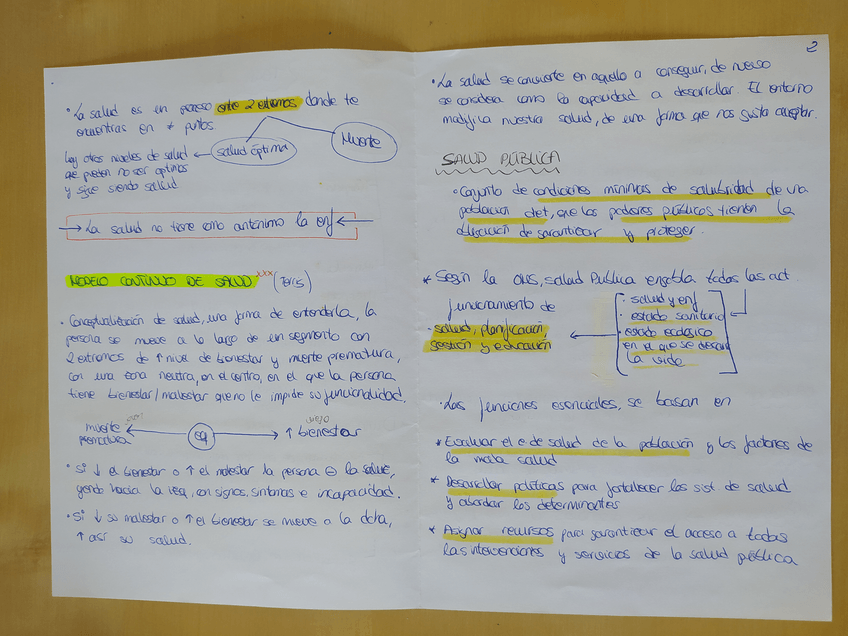 · La salud es un proceso entre 2 extremos donde te
encuentras en ≠ puntos.
Salud óptima
Muerte
hay otros niveles de salud
que pueden no ser óptimos
y sigue siendo salud
La salud no tiene como antónimo la enf
MODELO CONTINUO DE SALUD xxx (Terris)
· Conceptualización de salud, una forma de entenderla, la
persona se mueve a lo largo de un segmento con
2 extremos de ↑ nivel de bienestar y muerte prematura,
con una zona neutra, en el centro, en el que la persona
tiene bienestar/malestar que no le impide su funcionalidad.
muerte
prematura
eq
↑ bienestar
· Si ↓ el bienestar o ↑ el malestar la persona ⊖ la salud,
yendo hacia la izq, con signos, síntomas e incapacidad.
· Si ↓ su malestar o ↑ el bienestar se mueve a la dcha,
↑ así su salud.
2
· La salud se convierte en aquello a conseguir, de nuevo
se considera como la capacidad a desarrollar. El entorno
modifica nuestra salud, de una forma que nos gusta aceptar.
SALUD PÚBLICA
· Conjunto de condiciones mínimas de salubridad de una
población det, que los poderes públicos tienen la
obligación de garantizar y proteger.
* Según la OMS, Salud Pública engloba todas las act.
funcionamiento de
· salud, planificación
gestión y educación
· salud y enf
· estado sanitario
· estado ecológico
en el que se desarr
la vida
· Las funciones esenciales, se basan en
* Evaluar el e de salud de la población y los factores de
la mala salud
* Desarrollar políticas para fortalecer los sist de salud
y abordar los determinantes
* Asignar recursos para garantizar el acceso a todas
las intervenciones y servicios de la salud pública